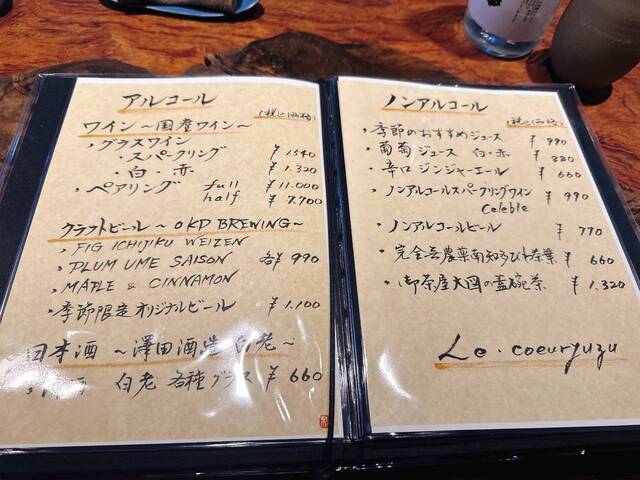 アルコール
(税込価格)
ワイン～国産ワイン～
・グラスワイン
・スパークリング ¥1540
・白・赤 ¥1.320
・ペアリング full ¥11.000
half ¥7.700
クラフトビール～OKD BREWING～
・FIG ICHIJIKU WEIZEN
・PLUM UME SAISON 各¥990
・MAPLE & CINNAMON
・季節限定オリジナルビール ¥1.100
日本酒 ～澤田酒造 白老～
酒 白老 各種グラス ¥660
ノンアルコール
(税込価格)
・季節のおすすめジュース ¥990
・葡萄ジュース 白・赤 ¥880
・辛口ジンジャーエール ¥660
・ノンアルコールスパークリングワイン ¥990
Celeble
・ノンアルコールビール ¥770
・完全無農薬南知多びわ茶葉 ¥660
・御茶屋大國の蓋碗茶 ¥1.320
Le・coeuryuzu